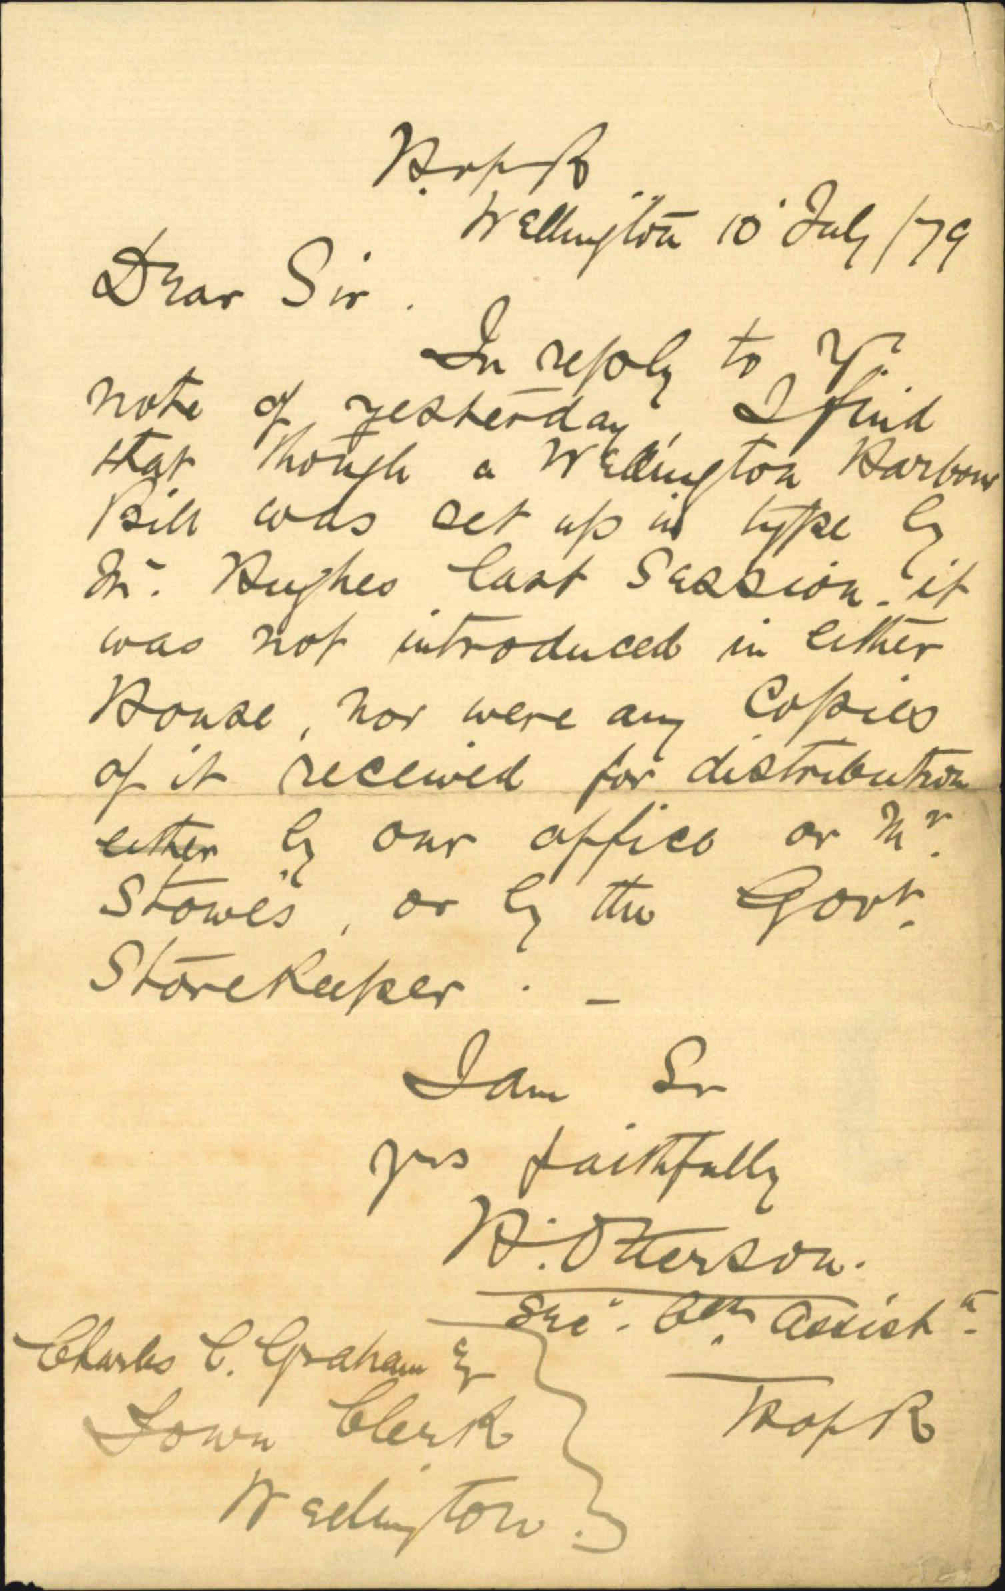 H. of R
Wellington 10 July /79
Dear Sir.
In reply to Yr.
note of yesterday, I find
that though a Wellington Harbour
Bill was set up in type by
Mr. Hughes last Session - it
was not introduced in either
House, nor were any Copies
of it received for distribution
either by our office or Mr.
Stowe's, or by the Govt.
Storekeeper. -
I am Sr
yrs faithfully
H. Otterson.
Sec. Clk Assistt.
H of R
Charles C. Graham Esq
Town Clerk
Wellington.